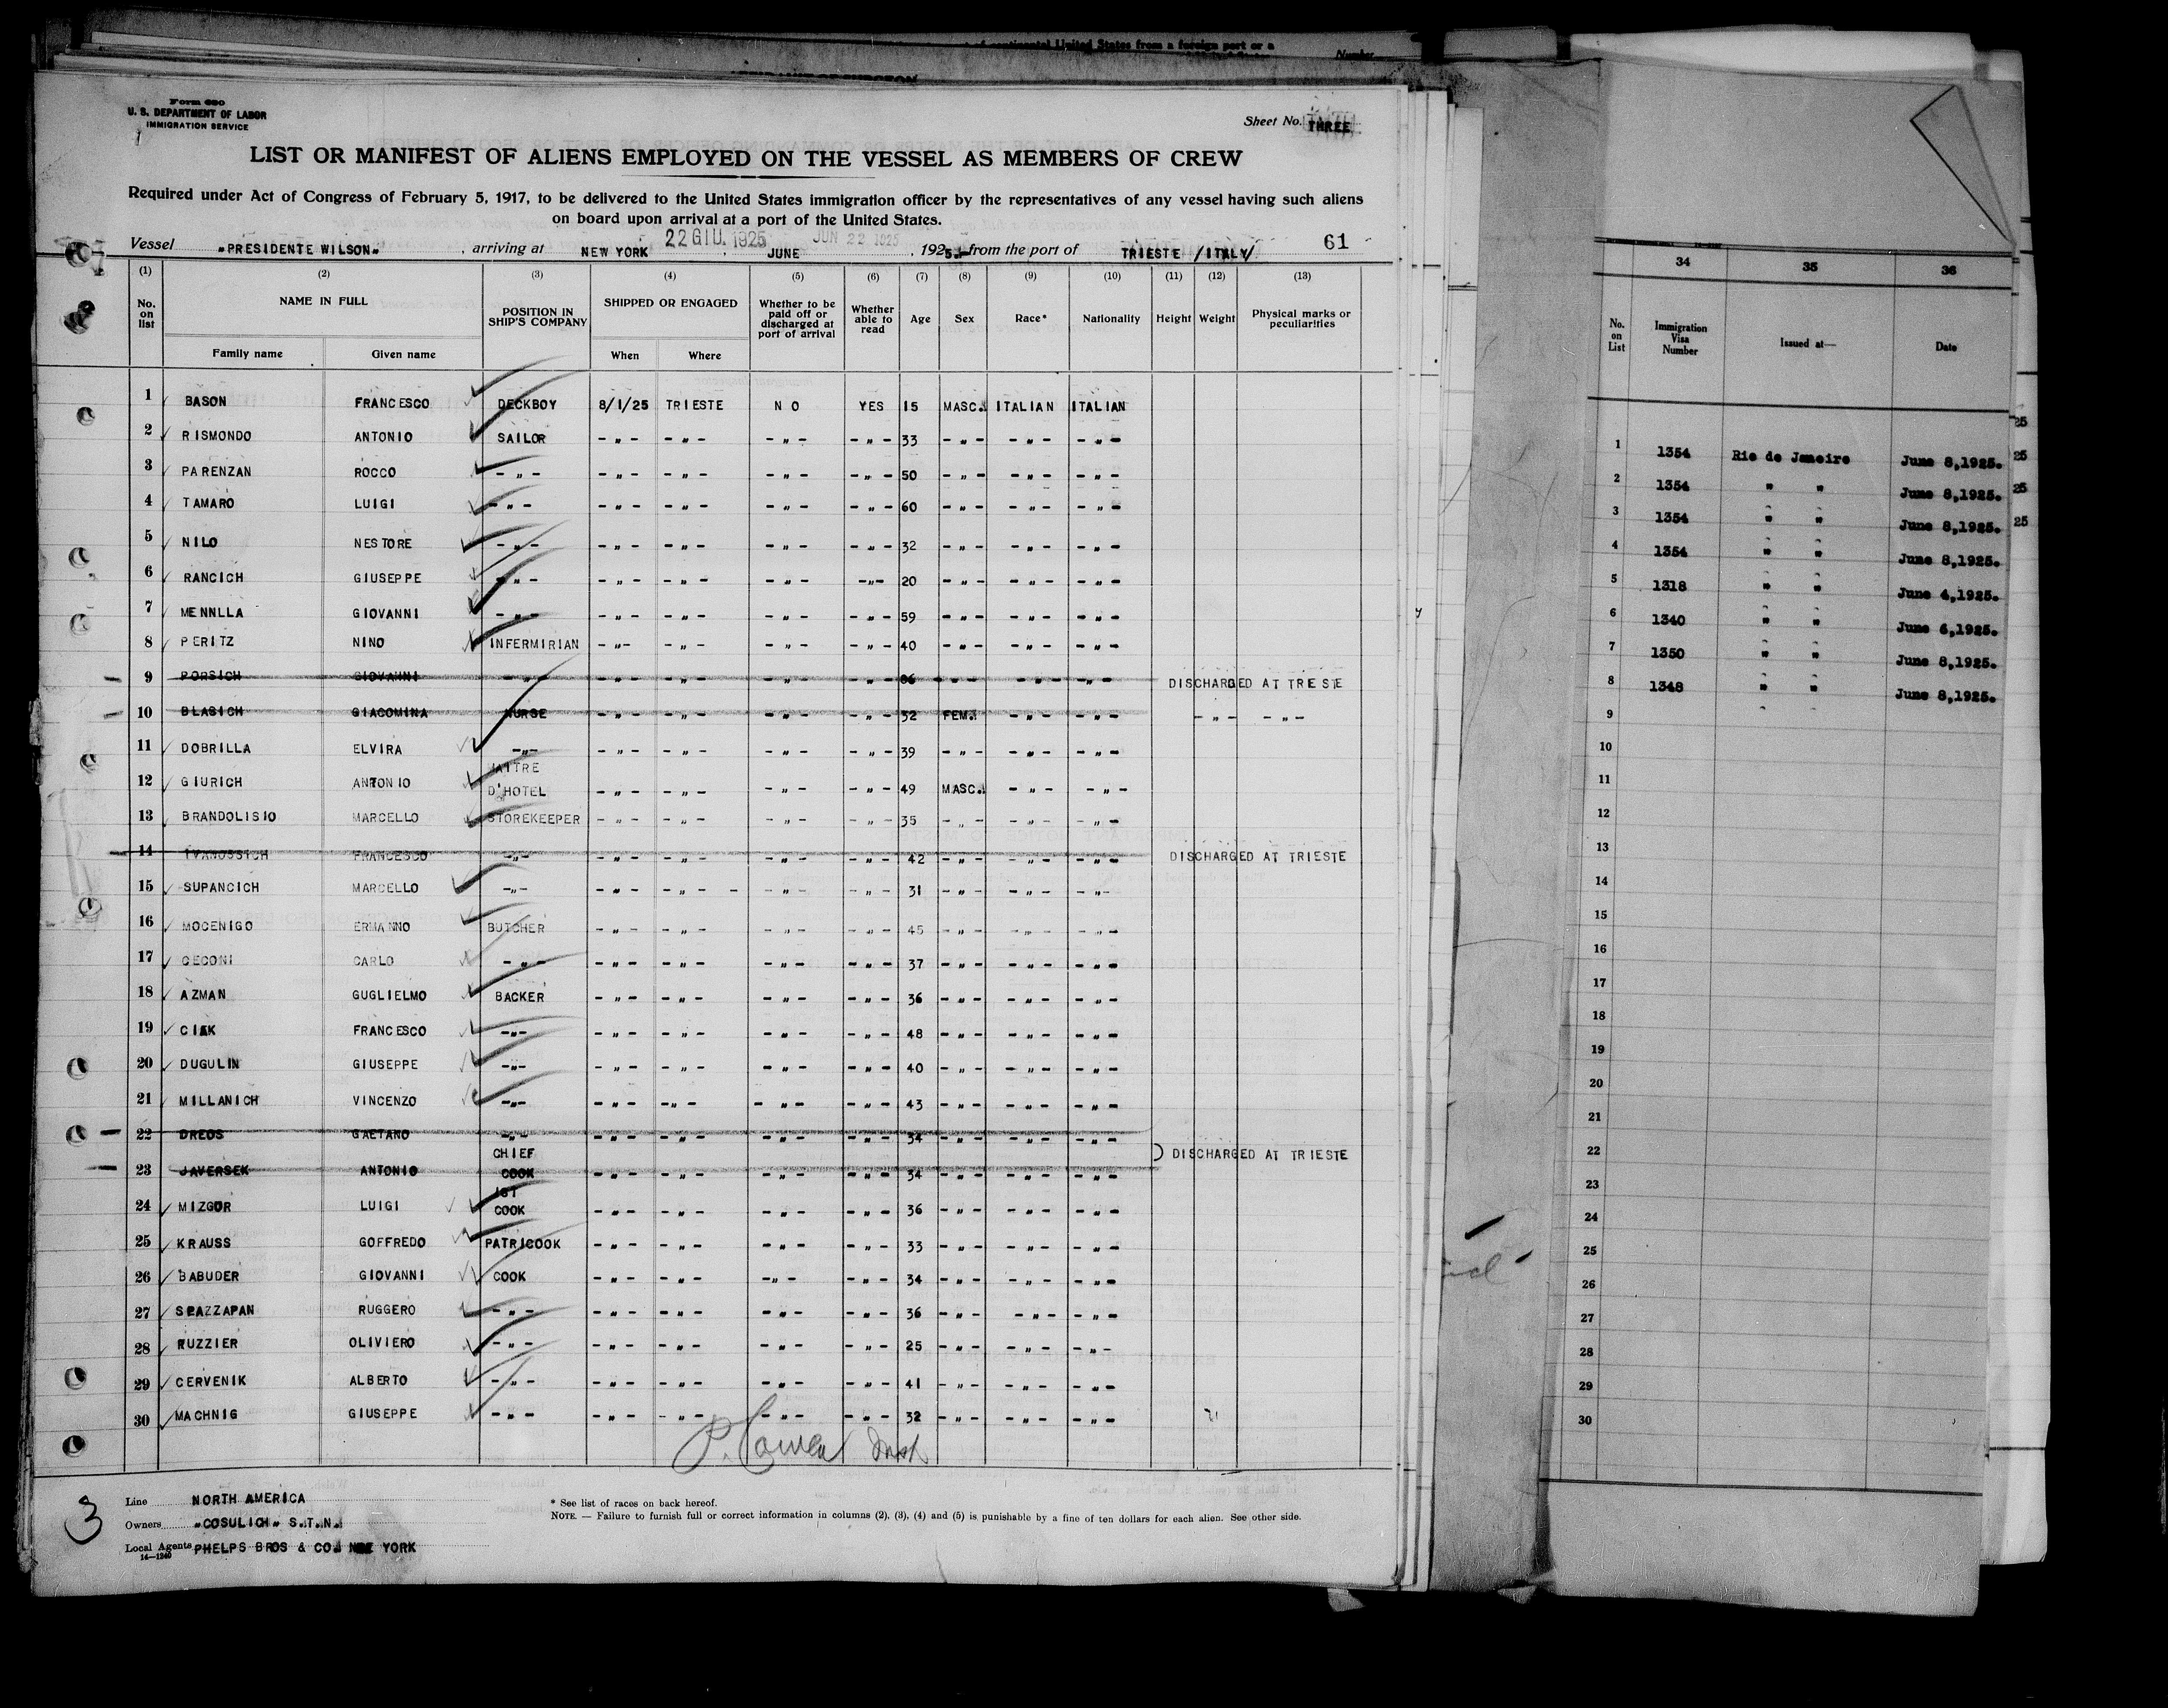 of continental United States from a foreign port or a
Number
Form 680
U. S. DEPARTMENT OF LABOR
IMMIGRATION SERVICE
Sheet No. THREE
LIST OR MANIFEST OF ALIENS EMPLOYED ON THE VESSEL AS MEMBERS OF CREW
Required under Act of Congress of February 5, 1917, to be delivered to the United States immigration officer by the representatives of any vessel having such aliens
on board upon arrival at a port of the United States.
22 GIU. 1925 JUN 22 1925 61
Vessel "PRESIDENTE WILSON", arriving at NEW YORK, JUNE, 1925.- from the port of TRIESTE /ITALY/
(1) (2) (3) (4) (5) (6) (7) (8) (9) (10) (11) (12) (13)
No. on list NAME IN FULL POSITION IN SHIP'S COMPANY SHIPPED OR ENGAGED Whether to be paid off or discharged at port of arrival Whether able to read Age Sex Race* Nationality Height Weight Physical marks or peculiarities
Family name Given name When Where
1 BASON FRANCESCO DECKBOY 8/1/25 TRIESTE NO YES 15 MASC. ITALIAN ITALIAN
2 RISMONDO ANTONIO SAILOR -"- -"- -"- -"- 33 -"- -"- -"-
3 PARENZAN ROCCO -"- -"- -"- -"- -"- 50 -"- -"- -"-
4 TAMARO LUIGI -"- -"- -"- -"- -"- 60 -"- -"- -"-
5 NILO NESTORE -"- -"- -"- -"- -"- 32 -"- -"- -"-
6 RANCICH GIUSEPPE -"- -"- -"- -"- -"- 20 -"- -"- -"-
7 MENNLLA GIOVANNI -"- -"- -"- -"- -"- 59 -"- -"- -"-
8 PERITZ NINO INFERMIRIAN -"- -"- -"- -"- 40 -"- -"- -"-
9 PORSICH GIOVANNI -"- -"- -"- -"- -"- 36 -"- -"- -"- DISCHARGED AT TRESTE
10 BLASICH GIACOMINA NURSE -"- -"- -"- -"- 32 FEM. -"- -"- -"- -"-
11 DOBRILLA ELVIRA -"- -"- -"- -"- -"- 39 -"- -"- -"-
12 GIURICH ANTONIO MAITRE D'HOTEL -"- -"- -"- -"- 49 MASC. -"- -"-
13 BRANDOLISIO MARCELLO STOREKEEPER -"- -"- -"- -"- 35 -"- -"- -"-
14 IVANOSSICH FRANCESCO -"- -"- -"- -"- -"- 42 -"- -"- -"- DISCHARGED AT TRIESTE
15 SUPANCICH MARCELLO -"- -"- -"- - -"- -"- 31 -"- -"- -"-
16 MOCENIGO ERMANNO BUTCHER -"- -"- -"- -"- 45 -"- -"- -"-
17 CECONI CARLO -"- -"- -"- -"- -"- 37 -"- -"- -"-
18 AZMAN GUGLIELMO BACKER -"- -"- -"- -"- 36 -"- -"- -"-
19 CIAK FRANCESCO -"- -"- -"- -"- -"- 48 -"- -"- -"-
20 DUGULIN GIUSEPPE -"- -"- -"- -"- -"- 40 -"- -"- -"-
21 MILLANICH VINCENZO -"- -"- -"- -"- -"- 43 -"- -"- -"-
22 DREOS GAETANO -"- -"- -"- -"- -"- 34 -"- -"- -"-
) DISCHARGED AT TRIESTE
23 JAVERSEK ANTONIO CHIEF COOK -"- -"- -"- -"- 34 -"- -"- -"-
24 MIZGOR LUIGI 1ST COOK -"- -"- -"- -"- 36 -"- -"- -"-
25 KRAUSS GOFFREDO PATRICOOK -"- -"- -"- -"- 33 -"- -"- -"-
26 BABUDER GIOVANNI COOK -"- -"- -"- -"- 34 -"- -"- -"-
27 SPAZZAPAN RUGGERO -"- -"- -"- -"- -"- 36 -"- -"- -"-
28 RUZZIER OLIVIERO -"- -"- -"- -"- -"- 25 -"- -"- -"-
29 CERVENIK ALBERTO -"- -"- -"- -"- -"- 41 -"- -"- -"-
30 MACHNIG GIUSEPPE -"- -"- -"- -"- -"- 32 -"- -"- -"-
3
Line NORTH AMERICA
Owners "COSULICH" S.T.N.
Local Agents PHELPS BROS & CO. NEW YORK
14—1240
* See list of races on back hereof.
NOTE. — Failure to furnish full or correct information in columns (2), (3), (4) and (5) is punishable by a fine of ten dollars for each alien. See other side.
34 35 36
No. on List Immigration Visa Number Issued at— Date
25
1 1354 Rio de Janeiro June 8,1925. 25
2 1354 " " June 8,1925. 25
3 1354 " " June 8,1925. 25
4 1354 " " June 8,1925.
5 1318 " " June 4,1925.
6 1340 " " June 6,1925.
7 1350 " " June 8,1925.
8 1348 " " June 8,1925.
9
10
11
12
13
14
15
16
17
18
19
20
21
22
23
24
25
26
27
28
29
30